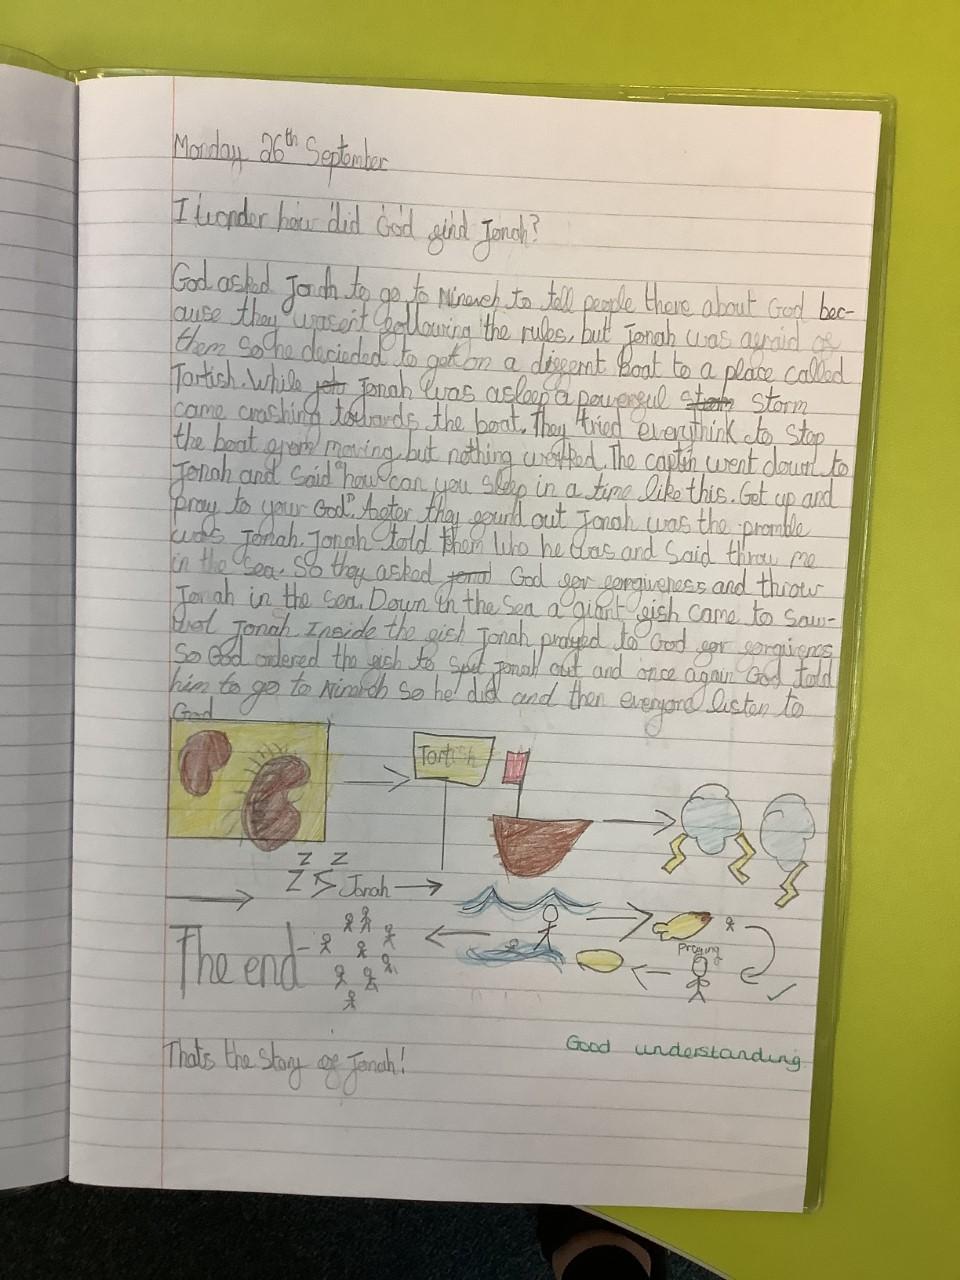 Monday 26th September
I wonder how did God find Jonah?
God asked Jonah to go to Nineveh to tell people there about God bec-
ause they wasen't following the rules, but Jonah was afraid of
them so he decieded to get on a differnt Boat to a place called
Tortish. While joh Jonah was asleep a powerful storm storm
came crashing towards the boat. They tried everythink to stop
the boat from moving but nothing worked. The captin went down to
Jonah and said "how can you sleep in a time like this. Get up and
pray to your God". After they found out Jonah was the promble
was Jonah. Jonah told them who he was and said throw me
in the sea. So they asked God for forgiveness and throw
Jonah in the sea. Down in the sea a giant fish came to saw-
Jonah. Inside the fish Jonah prayed to God for forgivness
So God ordered the fish to spit Jonah out and once again God told
him to go to so he did and then everyone listen to
God
Tortish
z z
Z Jonah
Praying
The end
Good understanding
Thats the story of Jonah!